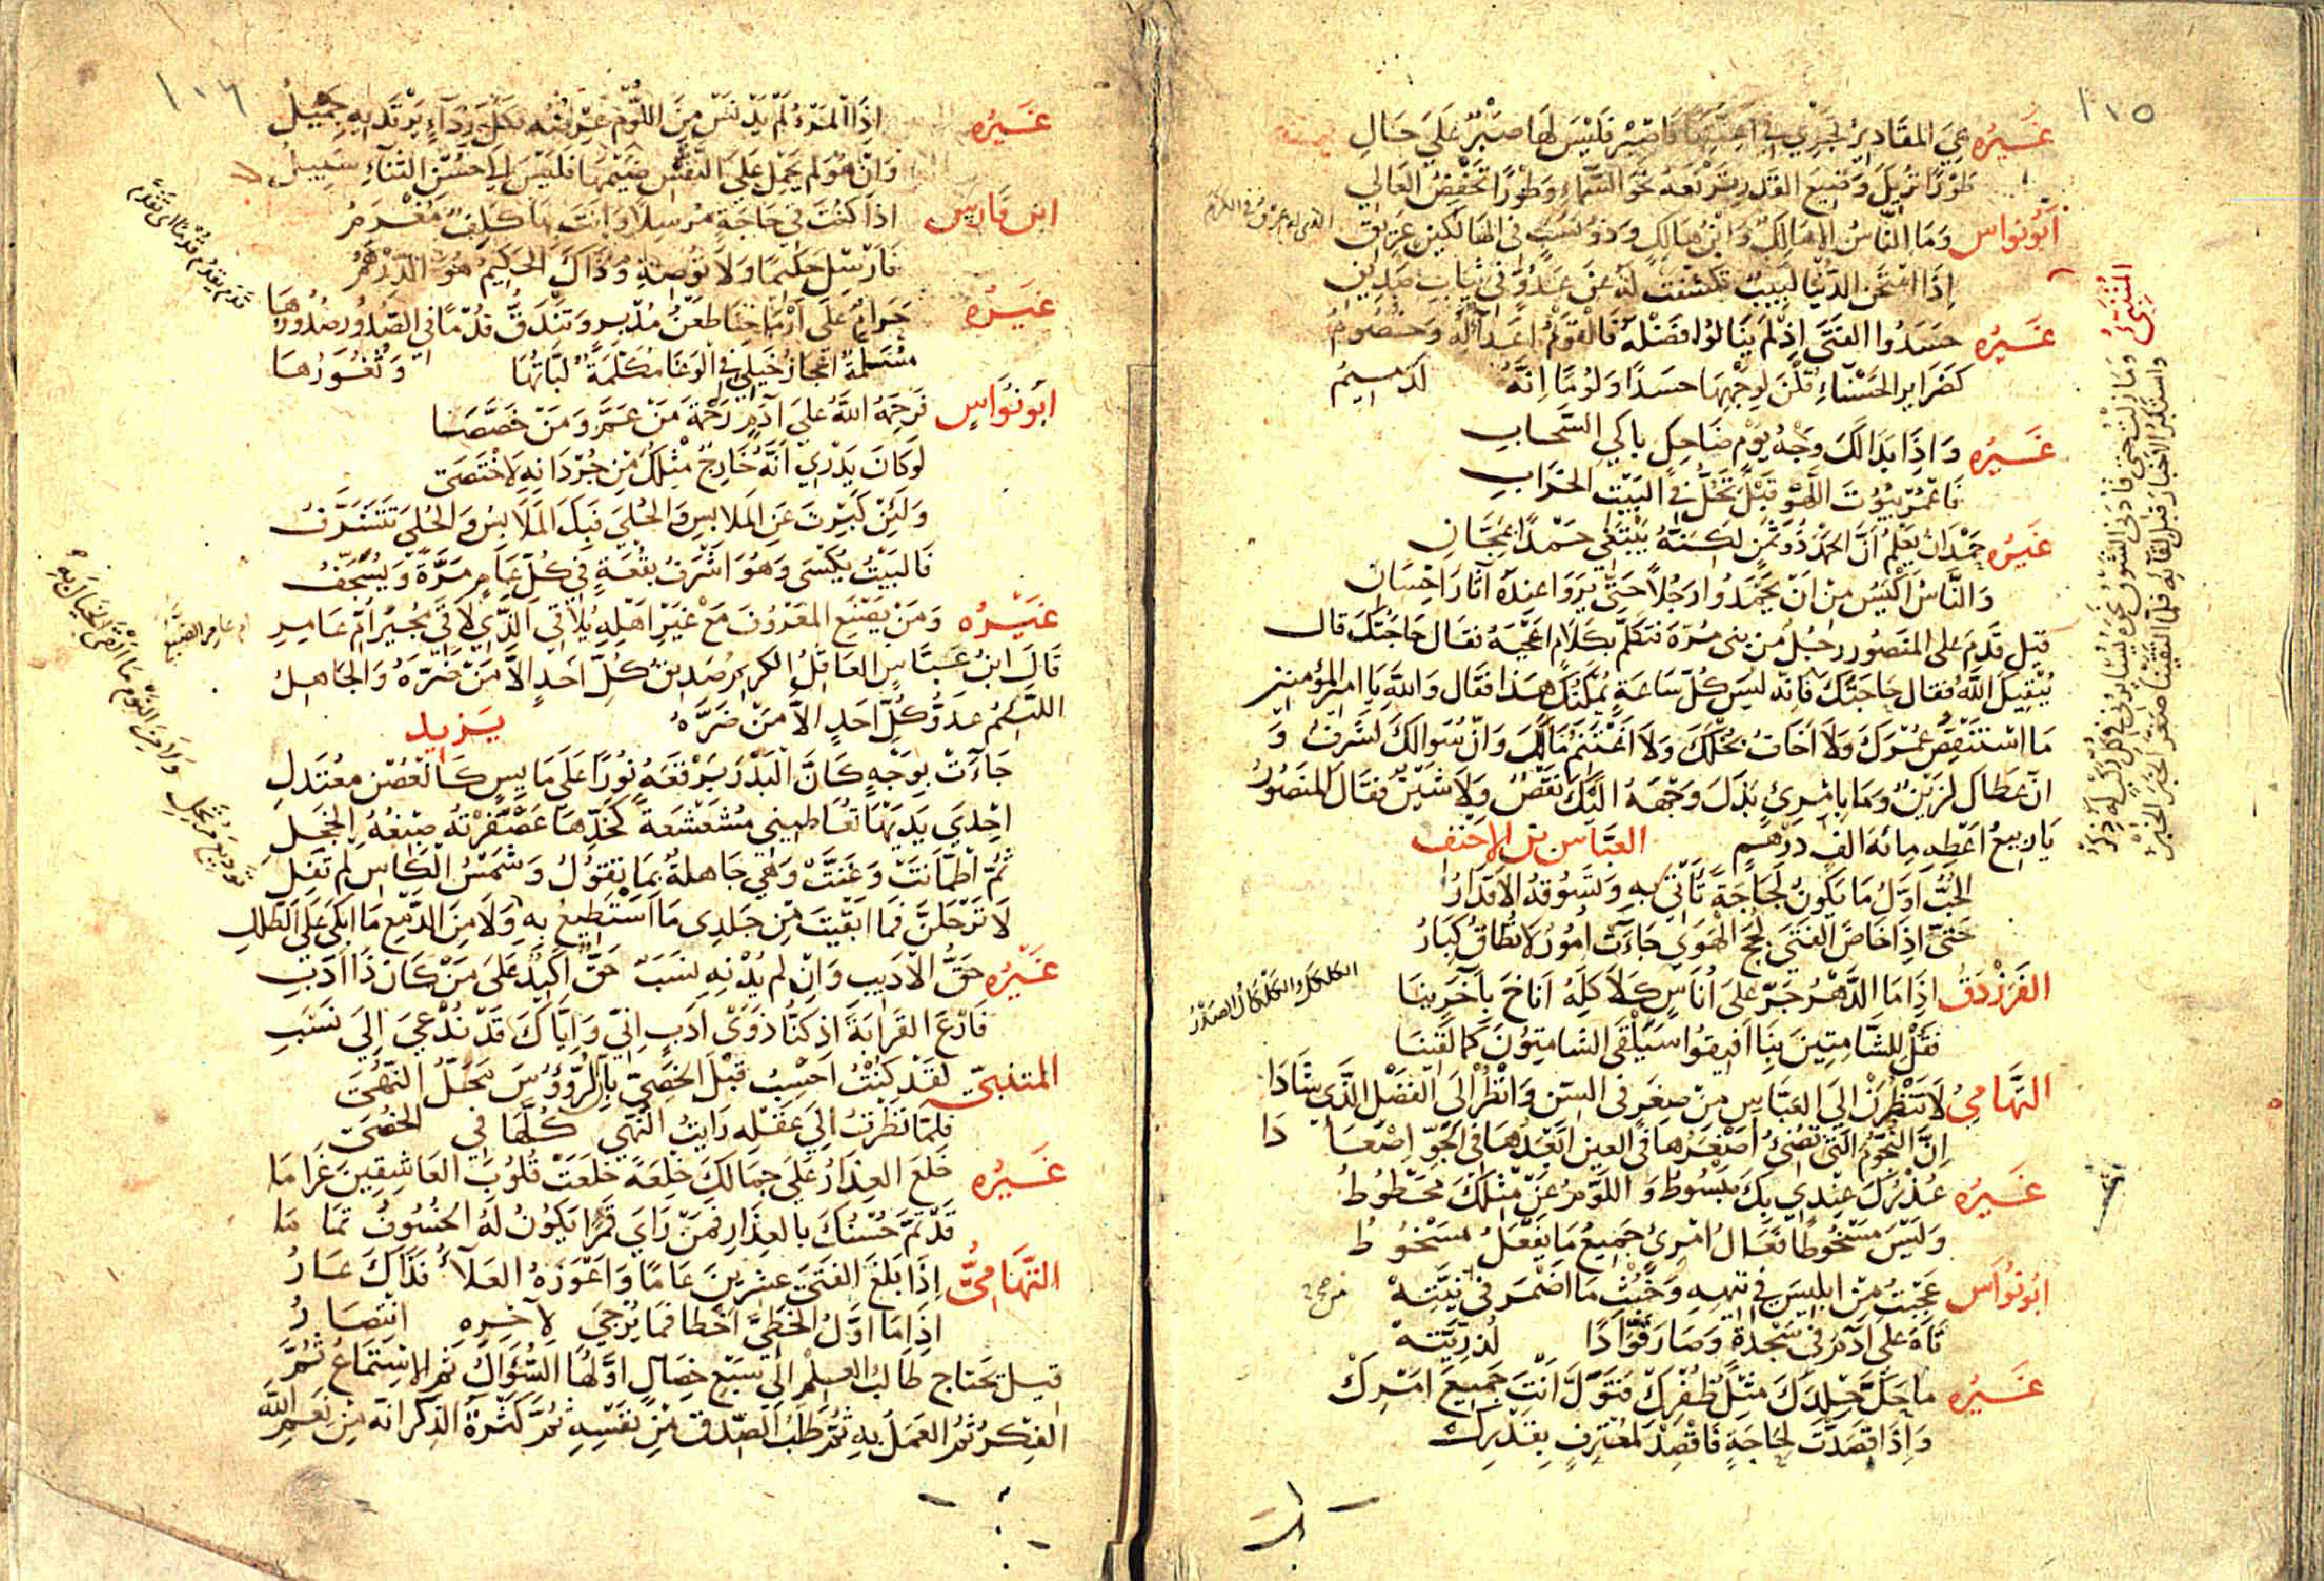 ١٠٥
غَيرُه هِيَ المقَادِيرُ تَجْرِي فِي اَعِنَّتِهَا فَاصْبِرْ فَلَيْسَ لَهَا صَبْرٌ عَلَى حَالِ
طَوْرًا تُرِيكَ وَضِيعَ القَدْرِ تَرْفَعُهُ نَحْوَ السَّمَاءِ وَطَوْرًا تَخْفِضُ العَالِي
اَبُونواس وَمَا النَّاسُ اِلَّا هَالِكٌ وَابْنُ هَالِكٍ وَذُو نَسَبٍ فِي الهَالِكِينَ عَرِيقِ
اِذَا امْتَحَنَ الدُّنْيَا لَبِيبٌ تَكَشَّفَتْ لَهُ عَنْ عَدُوٍّ فِي ثِيَابِ صَدِيقِ
غَيرُه حَسَدُوا الفَتَى اِذْ لَمْ يَنَالُوا فَضْلَهُ فَالْقَوْمُ اَعْدَاءٌ لَهُ وَخُصُومُ
كَضَرَايِرِ الحَسْنَاءِ قُلْنَ لِوَجْهِهَا حَسَدًا وَلَوْمًا اِنَّهُ لَدَمِيمُ
غَيرُه وَاِذَا بَدَا لَكَ وَجْهُ يَوْمٍ ضَاحِكٍ بَاكِي السَّحَابِ
فَاعْمُرْ بُيُوتَ اللَّهْوِ قَبْلَ تَحُلُّ فِي البَيْتِ الخَرَابِ
غَيرُه حَمْدَانُ يَعْلَمُ اَنَّ الحَمْدَ ذُو ثَمَنٍ لَكِنَّهُ يَبْتَغِي حَمْدًا بِمَجَّانِ
وَالنَّاسُ اَكْيَسُ مِنْ اَنْ يَحْمَدُوا رَجُلًا حَتَّى يَرَوْا عِنْدَهُ آثَارَ اِحْسَانِ
قيل قَدِمَ على المنصُور رجُلٌ من بني مُرّة فتكلّمَ بكَلَامٍ اَعْجَبَهُ فقال حَاجَتَكَ قال
يُبْقِيكَ اللهُ فقال حَاجَتَكَ فَانّه ليسَ كُلَّ سَاعَةٍ يُمْكِنُكَ هَذَا فَقَال وَاللهِ يَا اميرَ المؤمنين
مَا اسْتَنْقِصُ عُمْرَكَ وَلَا اَخَافُ بُخْلَكَ وَلَا اَغْتَنِمُ مَالَكَ وَاِنّ سُوَالَكَ لَشَرَفٌ وَ
اِنّ عَطَاكَ لَزَيْنٌ وَمَا بِامْرِئٍ بَذَلَ وَجْهَهُ اِلَيْكَ نَقْصٌ وَلَا شَيْنٌ فَقَالَ المَنْصُورُ
يَا رَبِيعُ اَعْطِهِ مِائَةَ اَلْفِ دِرْهَمٍ العبّاس بن الاحنف
الحُبُّ اَوَّلُ مَا يَكُونُ لَجَاجَةً تَأْتِي بِهِ وَتَسُوقُهُ الاَقْدَارُ
حَتَّى اِذَا خَاضَ الفَتَى لُجَجَ الهَوَى جَاءَتْ اُمُورٌ لَا تُطَاقُ كِبَارُ
الفَرَزْدَق اِذَا مَا الدَّهْرُ جَرَّ عَلَى اُنَاسٍ كَلَاكِلَهُ اَنَاخَ بِآخَرِينَا
فَقُلْ لِلشَّامِتِينَ بِنَا اَفِيقُوا سَيَلْقَى الشَّامِتُونَ كَمَا لَقِينَا
التِّهَامِيُّ لَا تَنْظُرَنْ اِلَى العَبَّاسِ مِنْ صِغَرٍ فِي السِّنِّ وَانْظُرْ اِلَى الفَضْلِ الَّذِي شَادَا
اِنَّ النُّجُومَ الَّتِي تُضِئُ اَصْغَرُهَا فِي العَيْنِ اَبْعَدُهَا فِي الجَوِّ اِصْعَا دَا
غَيرُه عُذْرُكَ عِنْدِي بِكَ مَبْسُوطُ وَاللَّوْمُ عَنْ مِثْلِكَ مَحْطُوطُ
وَلَيْسَ مَسْخُوطًا فَعَالُ امْرِئٍ جَمِيعُ مَا يَفْعَلُ مَسْخُوطُ
ابُونُواس عَجِبْتُ مِنْ اِبْلِيسَ فِي تِيهِهِ وَخُبْثِ مَا اَضْمَرَ فِي نِيَّتِهْ
تَاهَ عَلَى آدَمَ فِي سَجْدَةٍ وَصَارَ قَوَّادًا لِذُرِّيَّتِهْ
غَيرُه مَا حَكَّ جِلْدَكَ مِثْلُ ظُفْرِكْ فَتَوَلَّ اَنْتَ جَمِيعَ اَمْرِكْ
وَاِذَا قَصَدْتَ لِحَاجَةٍ فَاقْصِدْ لِمُعْتَرِفٍ بِقَدْرِكْ
المُتَنَبِّي وَمَا زِلْتُ حَتَّى قَادَنِي الشَّوْقُ نَحْوَهُ يُسَايِرُنِي فِي كُلِّ رَكْبٍ لَهُ ذِكْرُ
وَاسْتَكْبِرُ الاَخْبَارَ قَبْلَ لِقَائِهِ فَلَمَّا الْتَقَيْنَا صَغَّرَ الخَبَرَ الخُبْرُ
الكلكل والكلكال الصدر
١٠٦
غَيرُه اِذَا المَرْءُ لَمْ يَدْنَسْ مِنَ اللُّؤْمِ عِرْضُهُ فَكُلُّ رِدَاءٍ يَرْتَدِيهِ جَمِيلُ
وَاِنْ هُوَ لَمْ يَحْمِلْ عَلَى النَّفْسِ ضَيْمَهَا فَلَيْسَ اِلَى حُسْنِ الثَّنَاءِ سَبِيلُ
ابن فارس اِذَا كُنْتَ فِي حَاجَةٍ مُرْسِلًا وَاَنْتَ بِهَا كَلِفٌ مُغْرَمُ
فَاَرْسِلْ حَكِيمًا وَلَا تُوصِهِ وَذَاكَ الحَكِيمُ هُوَ الدِّرْهَمُ
غَيرُه حَرَامٌ عَلَى اَرْمَاحِنَا طَعْنُ مُدْبِرٍ وَتَنْدَقُّ قُدْمًا فِي الصُّدُورِ صُدُورُهَا
مُسَلَّمَةٌ اَعْجَازُ خَيْلِي فِي الوَغَا مُكَلَّمَةٌ لَبَّاتُهَا وَنُحُورُهَا
ابُونُواس فَرَحِمَهُ اللهُ عَلَى آدَمٍ رَحْمَةَ مَنْ عَمَّ وَمَنْ خَصَّصَا
لَوْ كَانَ يَدْرِي اَنَّهُ خَارِجٌ مِثْلُكَ مِنْ جُرْدَانِهِ لَاخْتَصَى
وَلَئِنْ كَبُرْتَ عَنِ المَلَابِسِ وَالحُلِيِّ فَبِكَ المَلَابِسُ وَالحُلِيُّ تَتَشَرَّفُ
فَالبَيْتُ يُكْسَى وَهُوَ اَشْرَفُ بُقْعَةٍ فِي كُلِّ عَامٍ مَرَّةً وَيُسَجَّفُ
غَيْرُه وَمَنْ يَصْنَعِ المَعْرُوفَ مَعْ غَيْرِ اَهْلِهِ يُلَاقِي الَّذِي لَاقَى مُجِيرُ اُمِّ عَامِرِ
قَالَ ابنُ عَبَّاسٍ العَاقِلُ الكريمُ صَدِيقُ كُلِّ اَحَدٍ اِلَّا مَنْ ضَرَّهُ وَالجَاهِلُ
اللئيمُ عَدُوُّ كُلِّ اَحَدٍ اِلَّا مَنْ ضَرَّهُ يَزيد
جَاءَتْ بِوَجْهٍ كَاَنَّ البَدْرَ بَرْقَعَهُ نُورًا عَلَى مَايِسٍ كَالغُصْنِ مُعْتَدِلِ
اِحْدَى يَدَيْهَا تُعَاطِينِي مُشَعْشَعَةً كَخَدِّهَا عَصْفَرَتْهُ صِبْغَةُ الخَجَلِ
ثُمَّ اطْمَاَنَّتْ وَغَنَّتْ وَهْيَ جَاهِلَةٌ بِمَا تَقُولُ وَشَمْسُ الكَاسِ لَمْ تَفِلِ
لَا تَرْحَلَنَّ فَمَا اَبْقَيْتَ مِنْ جَلَدِي مَا اَسْتَطِيعُ بِهِ تَوْدِيعَ مُرْتَحِلِ
وَلَا مِنَ النَّوْمِ مَا اَلْقَى الخَيَالَ بِهِ وَلَا مِنَ الدَّمْعِ مَا اَبْكِي عَلَى الطَّلَلِ
غَيرُه حَقُّ الاَدِيبِ وَاِنْ لَمْ يُدْنِهِ نَسَبٌ حَقٌّ اَكِيدٌ عَلَى مَنْ كَانَ ذَا اَدَبِ
فَادْعَ القَرَابَةَ اِذْ كُنَّا ذَوِي اَدَبٍ اِنِّي وَاِيَّاكَ قَدْ نُدْعَى اِلَى نَسَبِ
المتنبي لَقَدْ كُنْتُ اَحْسِبُ قَبْلَ الخَصِيِّ بِاَنَّ الرُّؤُوسَ مَحَلُّ النُّهَى
فَلَمَّا نَظَرْتُ اِلَى عَقْلِهِ رَاَيْتُ النُّهَى كُلَّهَا فِي الخُصَى
غَيرُه خَلَعَ العِذَارُ عَلَى جَمَالِكَ خِلْعَةً خَلَعَتْ قُلُوبَ العَاشِقِينَ غَرَامَا
قَدْ تَمَّ حُسْنُكَ بِالعِذَارِ فَمَنْ رَاَى قَمَرًا يَكُونُ لَهُ الخُسُوفُ تَمَا مَا
التِّهَامِيُّ اِذَا بَلَغَ الفَتَى عِشْرِينَ عَامًا وَاَعْوَزَهُ العَلَاءُ فَذَاكَ عَارُ
اِذَا مَا اَوَّلُ الخَطِّيِّ اَخْطَا فَمَا يُرْجَى لِآخِرِهِ انْتِصَارُ
قيل يَحتاج طَالِبُ العِلْمِ اِلَى سَبْعِ خِصَالٍ اَوَّلُهَا السُّؤَالُ ثُمَّ الاِسْتِمَاعُ ثُمَّ
الفِكْرُ ثُمَّ العَمَلُ بِهِ ثُمَّ طَلَبُ الصِّدْقِ مِنْ نَفْسِهِ ثُمَّ كَثْرَةُ الذِّكْرِ اَنَّهُ مِنْ نِعَمِ اللهِ